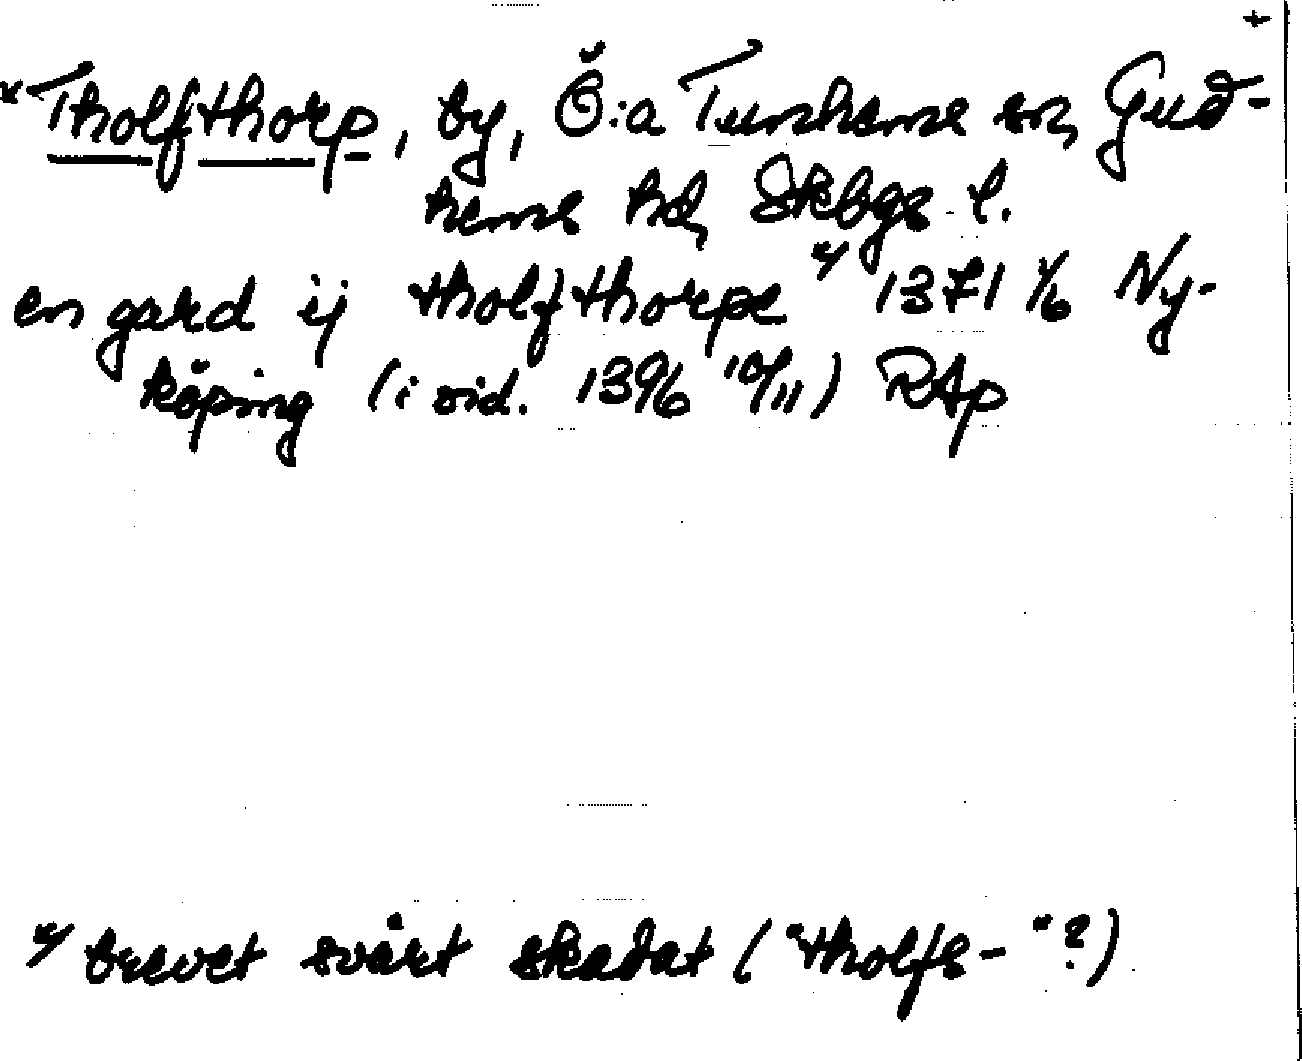 +
*Tholfthorp, by, Ö:a Tunhems sn, Gud-
hems hd, Skbgs l.
en gard ij tholfthorpe *) 1371 1/6 Ny-
köping (i vid. 1396 10/11) RAp
*) brevet svårt skadat ("tholfs-"?)